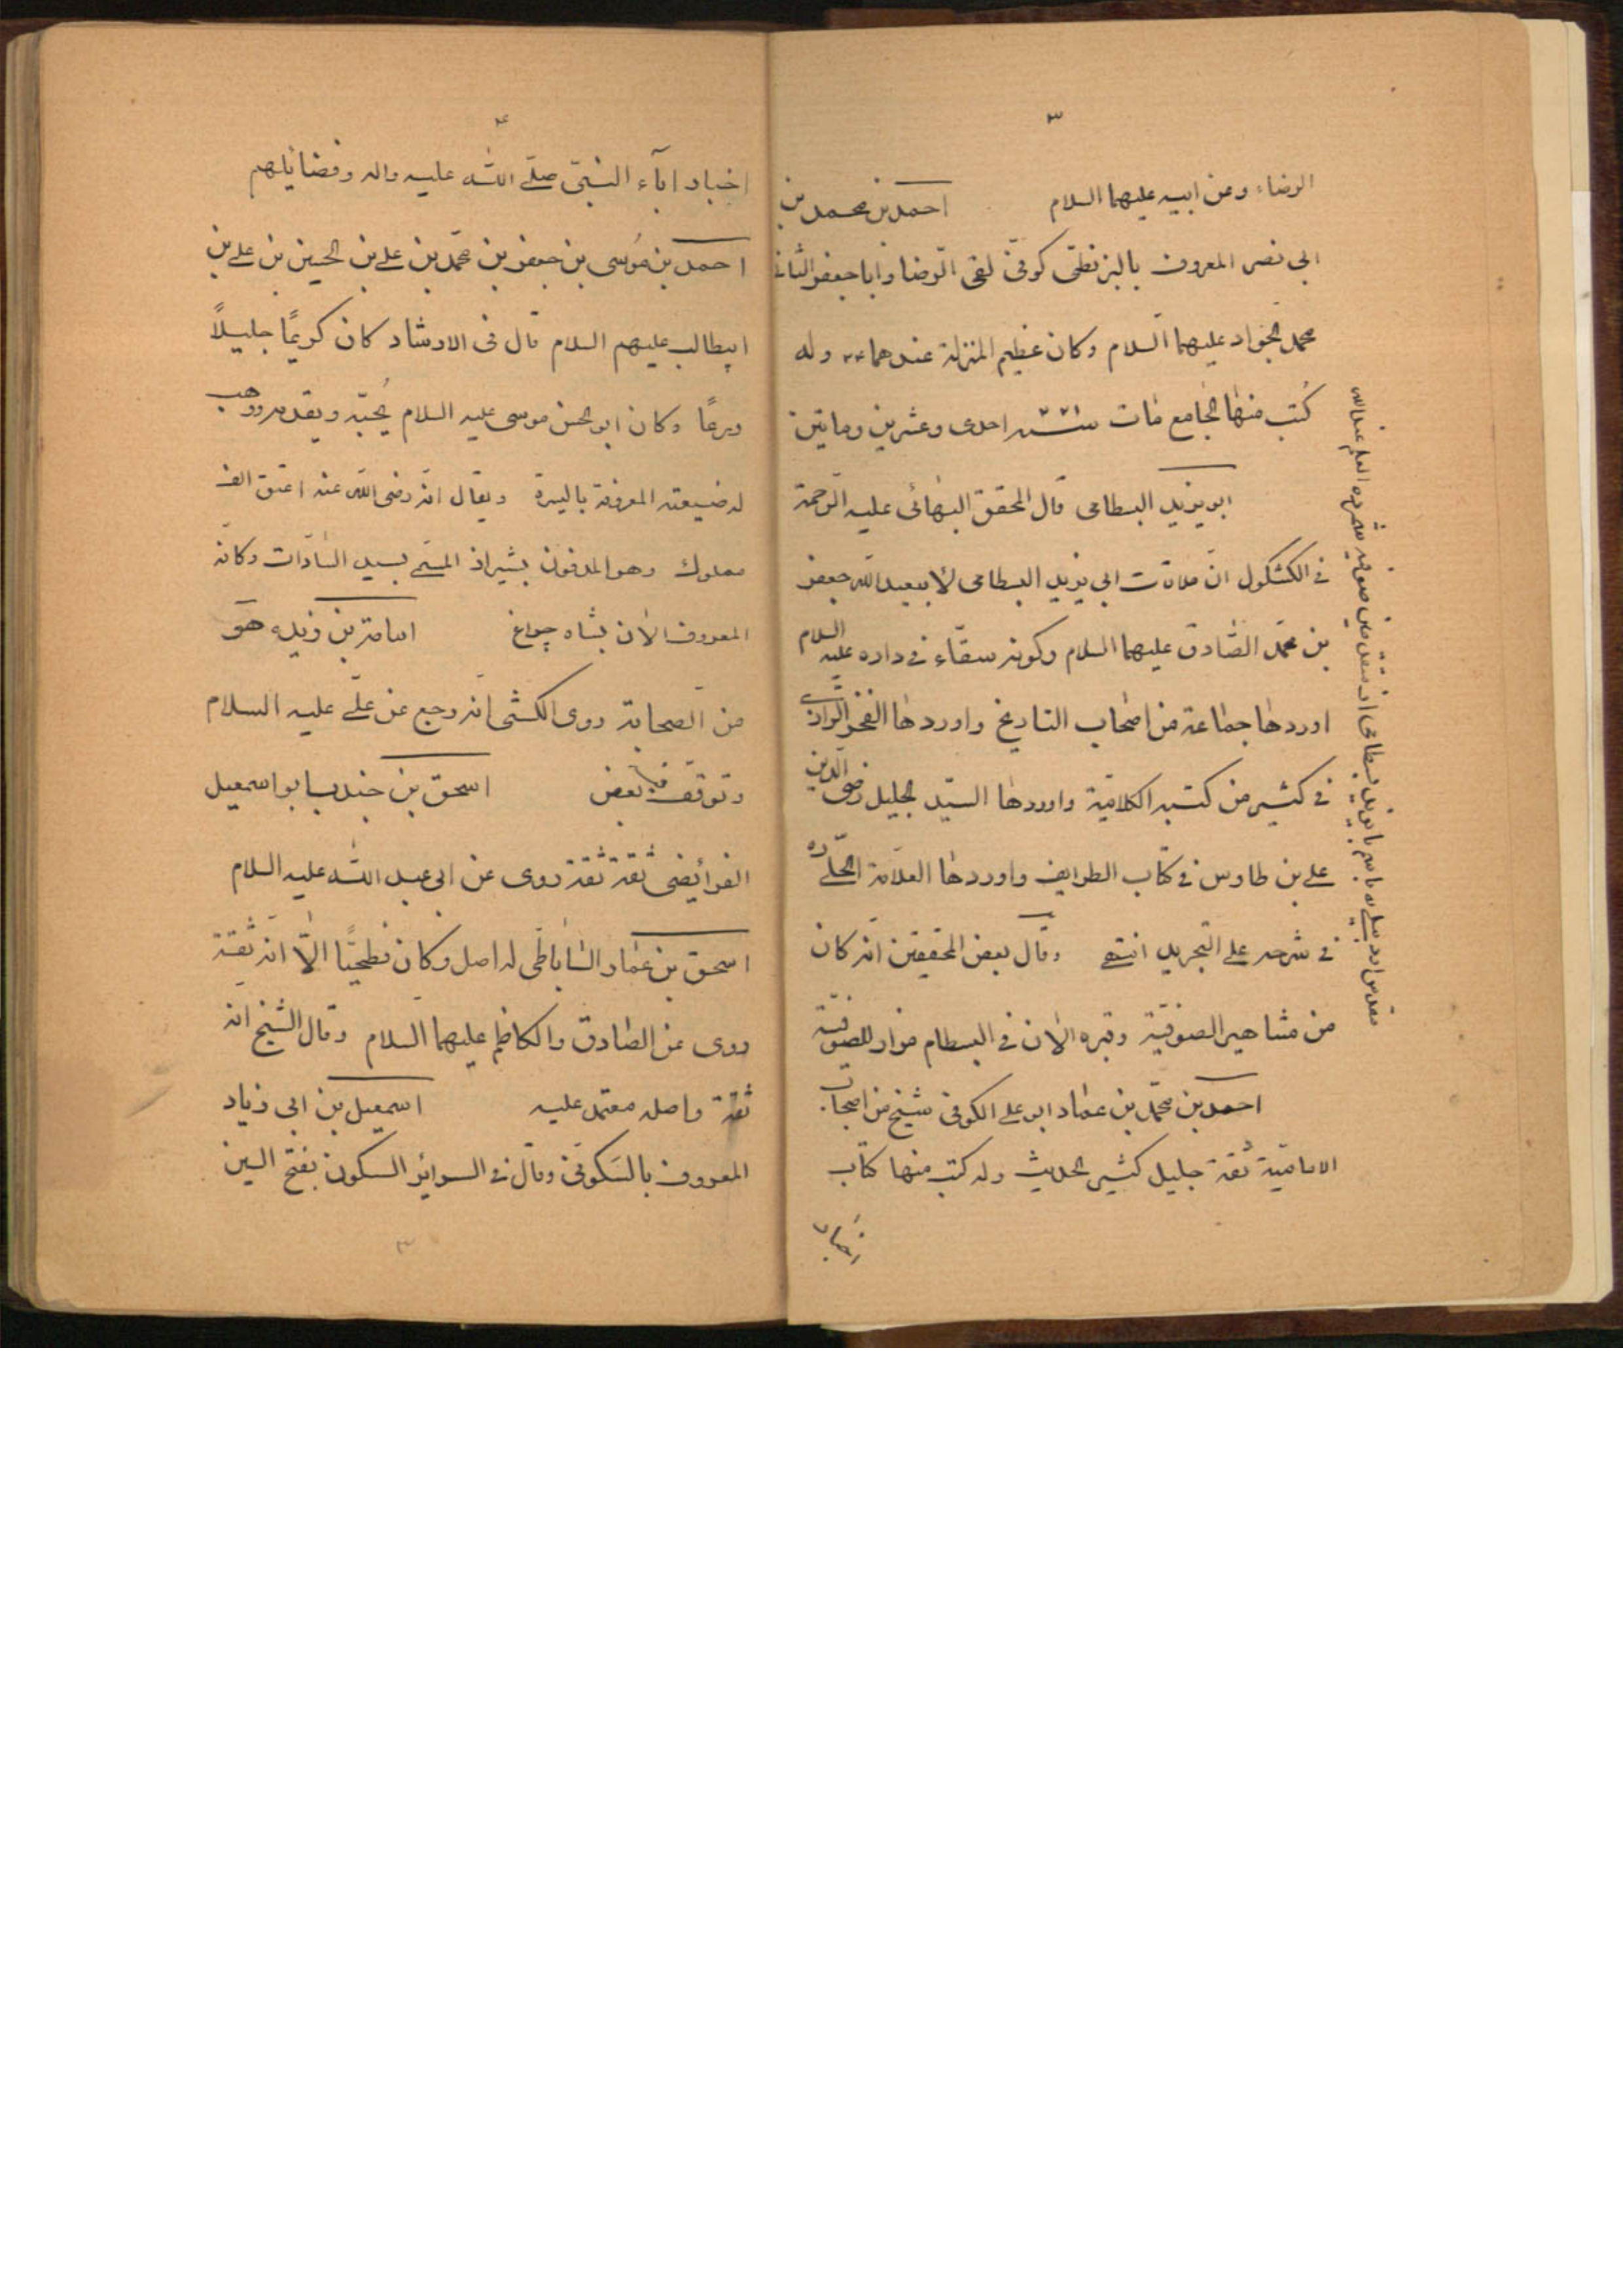 ٣
الرضاء وعن ابيه عليهما السلام احمد بن محمد بن
ابى نصر المعروف بالبزنطى كوفى لقى الرضا وابا جعفر الثانى
محمد الجواد عليهما السلام وكان عظيم المنزلة عندهما وله
كتب منها الجامع مات سنة احدى وعشرين وماتين
ابو يزيد البسطامى قال المحقق البهائى عليه الرحمة
فى الكشكول ان ملاقات ابى يزيد البسطامى لابيعبد الله جعفر
بن محمد الصادق عليهما السلام وكونه سقاء فى داره عليه السلام
اوردها جماعة من اصحاب التاريخ واوردها الفخر الرازى
فى كثير من كتبه الكلامية واوردها السيد الجليل رضى الدين
على بن طاوس فى كتاب الطرايف واوردها العلامة الحلى ره
فى شرحه على التجريد انتهى وقال بعض المحققين انه كان
من مشاهير الصوفية وقبره الان فى البسطام مزار للصوفية
احمد بن محمد بن عمار ابو على الكوفى شيخ من اصحاب
الامامية ثقة جليل كثير الحديث وله كتب منها كتاب
اخبار
٤
اخبار اباء النبى صلى الله عليه واله وفضائلهم
احمد بن موسى بن جعفر بن محمد بن على بن الحسين بن على بن
ابيطالب عليهم السلام قال فى الارشاد كان كريمًا جليلًا
ورعًا وكان ابو الحسن موسى عليه السلام يُحبّه ويقدمه ووهب
له ضيعته المعروفة باليسرة ويقال انه رضى الله عنه اعتق الف
مملوك وهو المدفون بشيراز المسمى بسيد السادات وكانه
المعروف الان بشاه چراغ اسامة بن زيد هو
من الصحابة روى الكشى انه رجع عن على عليه السلام
وتوقف فيه بعض اسحق بن جندب ابو اسمعيل
الفرائضى ثقة ثقة روى عن ابى عبد الله عليه السلام
اسحق بن عمار الساباطى له اصل وكان فطحيًا الا انه ثقة
روى عن الصادق والكاظم عليهما السلام وقال الشيخ انه
ثقة واصله معتمد عليه اسمعيل بن ابى زياد
المعروف بالسكونى وقال فى السرائر السكون بفتح السين